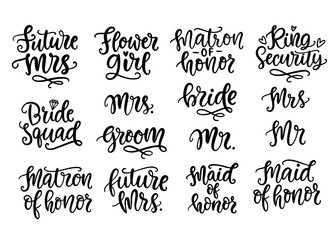 Future
Mrs
Flower
girl
Matron
OF
honor
Ring
Security
Bride
Squad
Mrs.
bride
Mrs
Groom
Mr.
Mr
Matron
of honor
future
Mrs.
Maid
of
honor
Maid
of honor